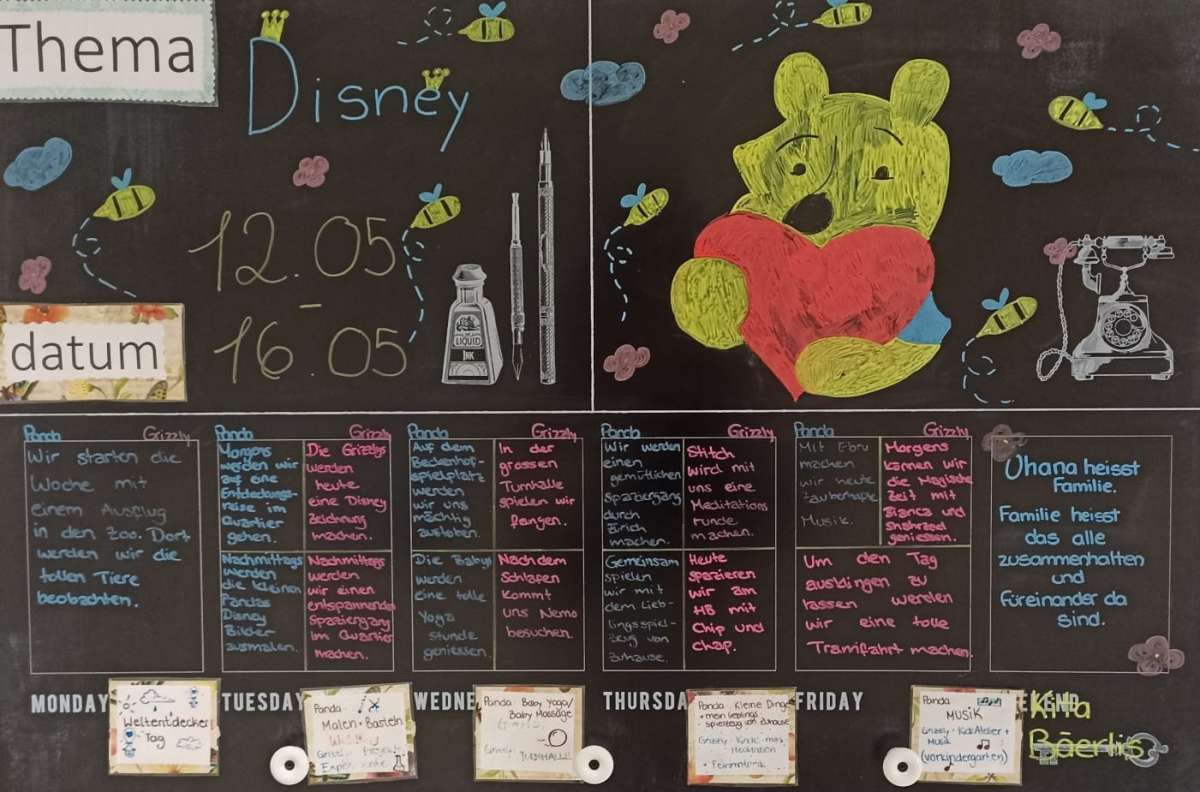 Thema
Disney
12.05
-
16.05
datum
LIQUID
INK
Panda Grizzly
Wir starten die
Woche mit
einem Ausflug
in den Zoo. Dort
werden wir die
tollen Tiere
beobachten.
MONDAY
Weltentdecker
Tag
Panda
Morgens
werden wir
auf eine
Entdeckungs-
reise im
Quartier
gehen.
Grizzly
Die Grizzlys
werden
heute
eine Disney
zeichnung
machen.
Nachmittags
werden
die kleinen
Pandas
Disney
Bilder
ausmalen.
Nachmittags
werden
wir einen
entspannenden
Spaziergang
im Quartier
machen.
TUESDAY
Panda:
Malen + Basteln
Panda
Auf dem
Beckenhof-
spielplatz
werden
wir uns
mächtig
austoben.
Grizzly
In der
grossen
Turnhalle
spielen wir
fangen.
Die Babys
werden
eine tolle
Yoga
stunde
geniessen.
Nach dem
Schlafen
kommt
uns Nemo
besuchen.
WEDNE
Panda: Baby Yoga/
Baby Massage
Grizzly: TURNHALLE
Panda
Wir werden
einen
gemütlichen
spaziergang
durch
Zürich
machen.
Grizzly
Stitch
wird mit
uns eine
Meditations
runde
machen.
Gemeinsam
spielen
wir mit
dem Lieb-
lingsspiel-
zeug von
zuhause.
Heute
spazieren
wir am
HB mit
Chip und
Chap.
THURSDA
Panda: Kleine Dinge
+ mein lieblings
spielzeug von zuhause
Meditation
Panda
Mit Ebru
machen
wir heute
zauberhafte
Musik.
Grizzly
Morgens
kamen wir
die Magische
Zeit mit
Bianca und
geniessen.
Um den Tag
ausklingen zu
lassen werden
wir eine tolle
Tramfahrt machen.
FRIDAY
Panda
MUSIK
Grizzly: KidsAtelier +
Musik
(vorkindergarten)
Ohana heisst
Familie.
Familie heisst
das alle
zusammenhalten
und
füreinander da
sind.
EKEND
Kita
Bäerlis